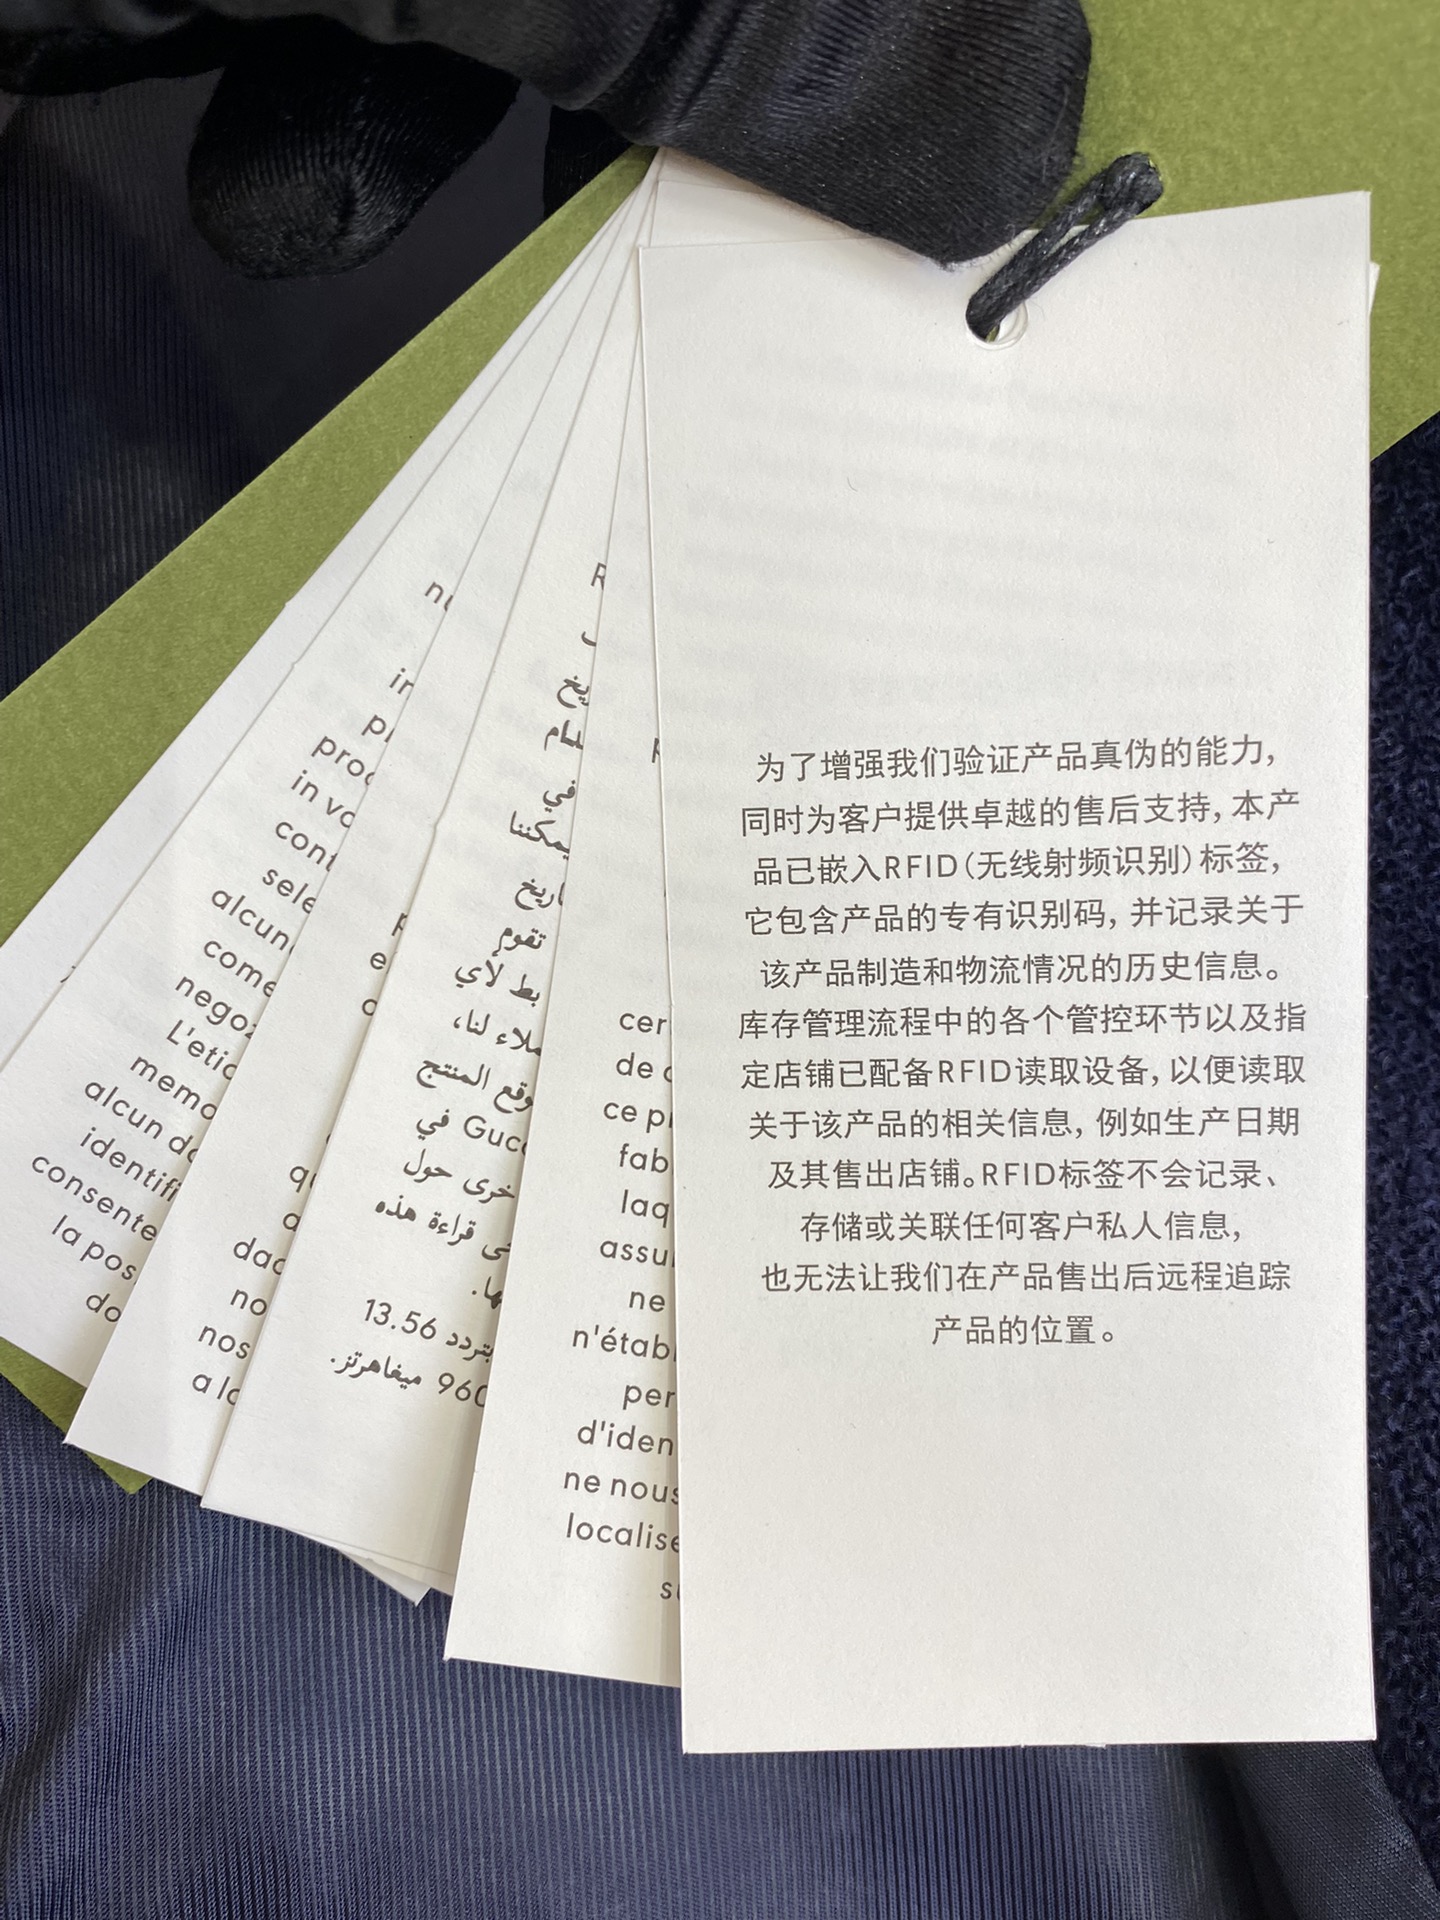 为了增强我们验证产品真伪的能力，
同时为客户提供卓越的售后支持，本产
品已嵌入RFID（无线射频识别）标签，
它包含产品的专有识别码，并记录关于
该产品制造和物流情况的历史信息。
库存管理流程中的各个管控环节以及指
定店铺已配备RFID读取设备，以便读取
关于该产品的相关信息，例如生产日期
及其售出店铺。RFID标签不会记录、
存储或关联任何客户私人信息，
也无法让我们在产品售出后远程追踪
产品的位置。
cer
de
ce p
fab
laq
assu
ne
n'étab
per
d'iden
ne nous
localise
في
يمكننا
تقوم
بط لأي
ملاء لنا،
وقع المنتج
Gucc في
خرى حول
قراءة هذه
ها.
بتردد 13.56
960 ميغاهرتز.
dac
no
nos
a la
in
proc
in vo
cont
sele
alcun
come
negoz
L'etic
memo
alcun da
identifi
consente
la pos
do